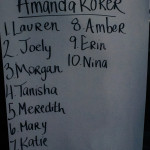 Amanda Koker
1 Lauren
2 Joely
3 Morgan
4 Tanisha
5 Meredith
6 Mary
7 Katie
8. Amber
9. Erin
10. Nina